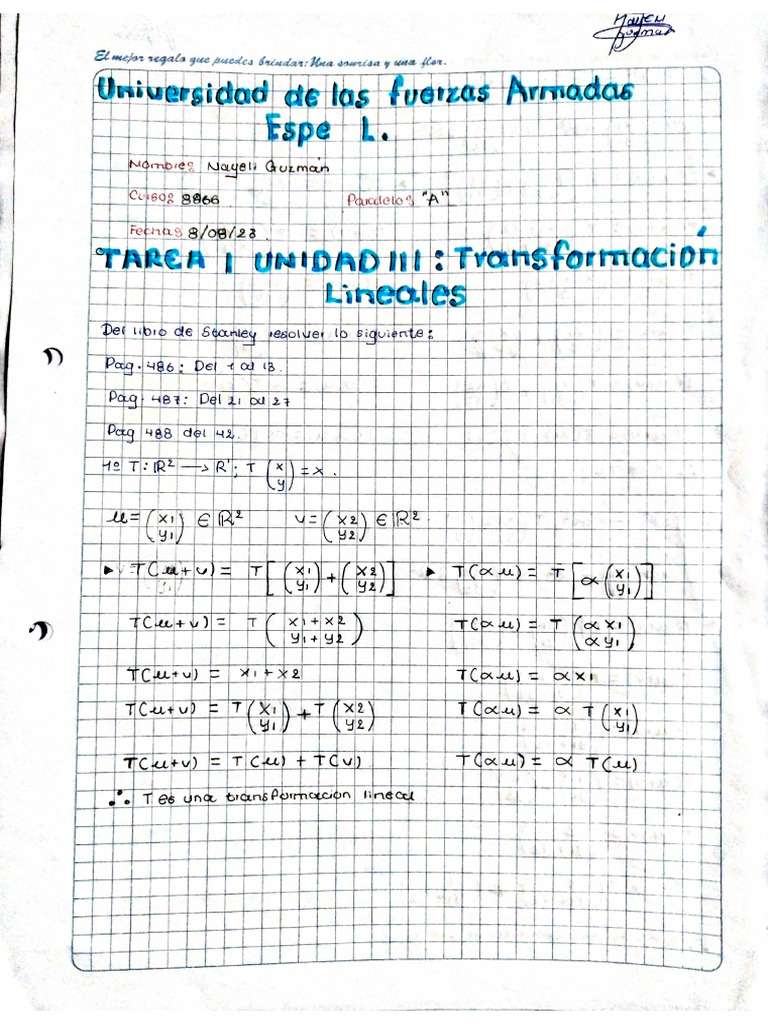 Nayeli
Guzman
El mejor regalo que puedes brindar: Una sonrisa y una flor.
Universidad de las fuerzas Armadas
Espe L.
Nombre: Nayeli Guzmán
Curso: 8866 Paralelo: "A"
Fecha: 8/08/23
TAREA 1 UNIDAD III: Transformación
Lineales
Del libro de Stanley resolver lo siguiente:
Pag. 486: Del 1 al 13.
Pag. 487: Del 21 al 27
Pag 488 del 42.
1º T: ℝ² → ℝ¹; T (x y) = x.
u = (x1 y1) ∈ ℝ² v = (x2 y2) ∈ ℝ².
▸ T(u+v) = T[(x1 y1) + (x2 y2)] ▸ T(αu) = T[α(x1 y1)]
T(u+v) = T(x1+x2 y1+y2) T(αu) = T(αx1 αy1)
T(u+v) = x1+x2 T(αu) = αx1
T(u+v) = T(x1 y1) + T(x2 y2) T(αu) = α T(x1 y1)
T(u+v) = T(u) + T(v) T(αu) = α T(u)
∴ T es una transformación lineal